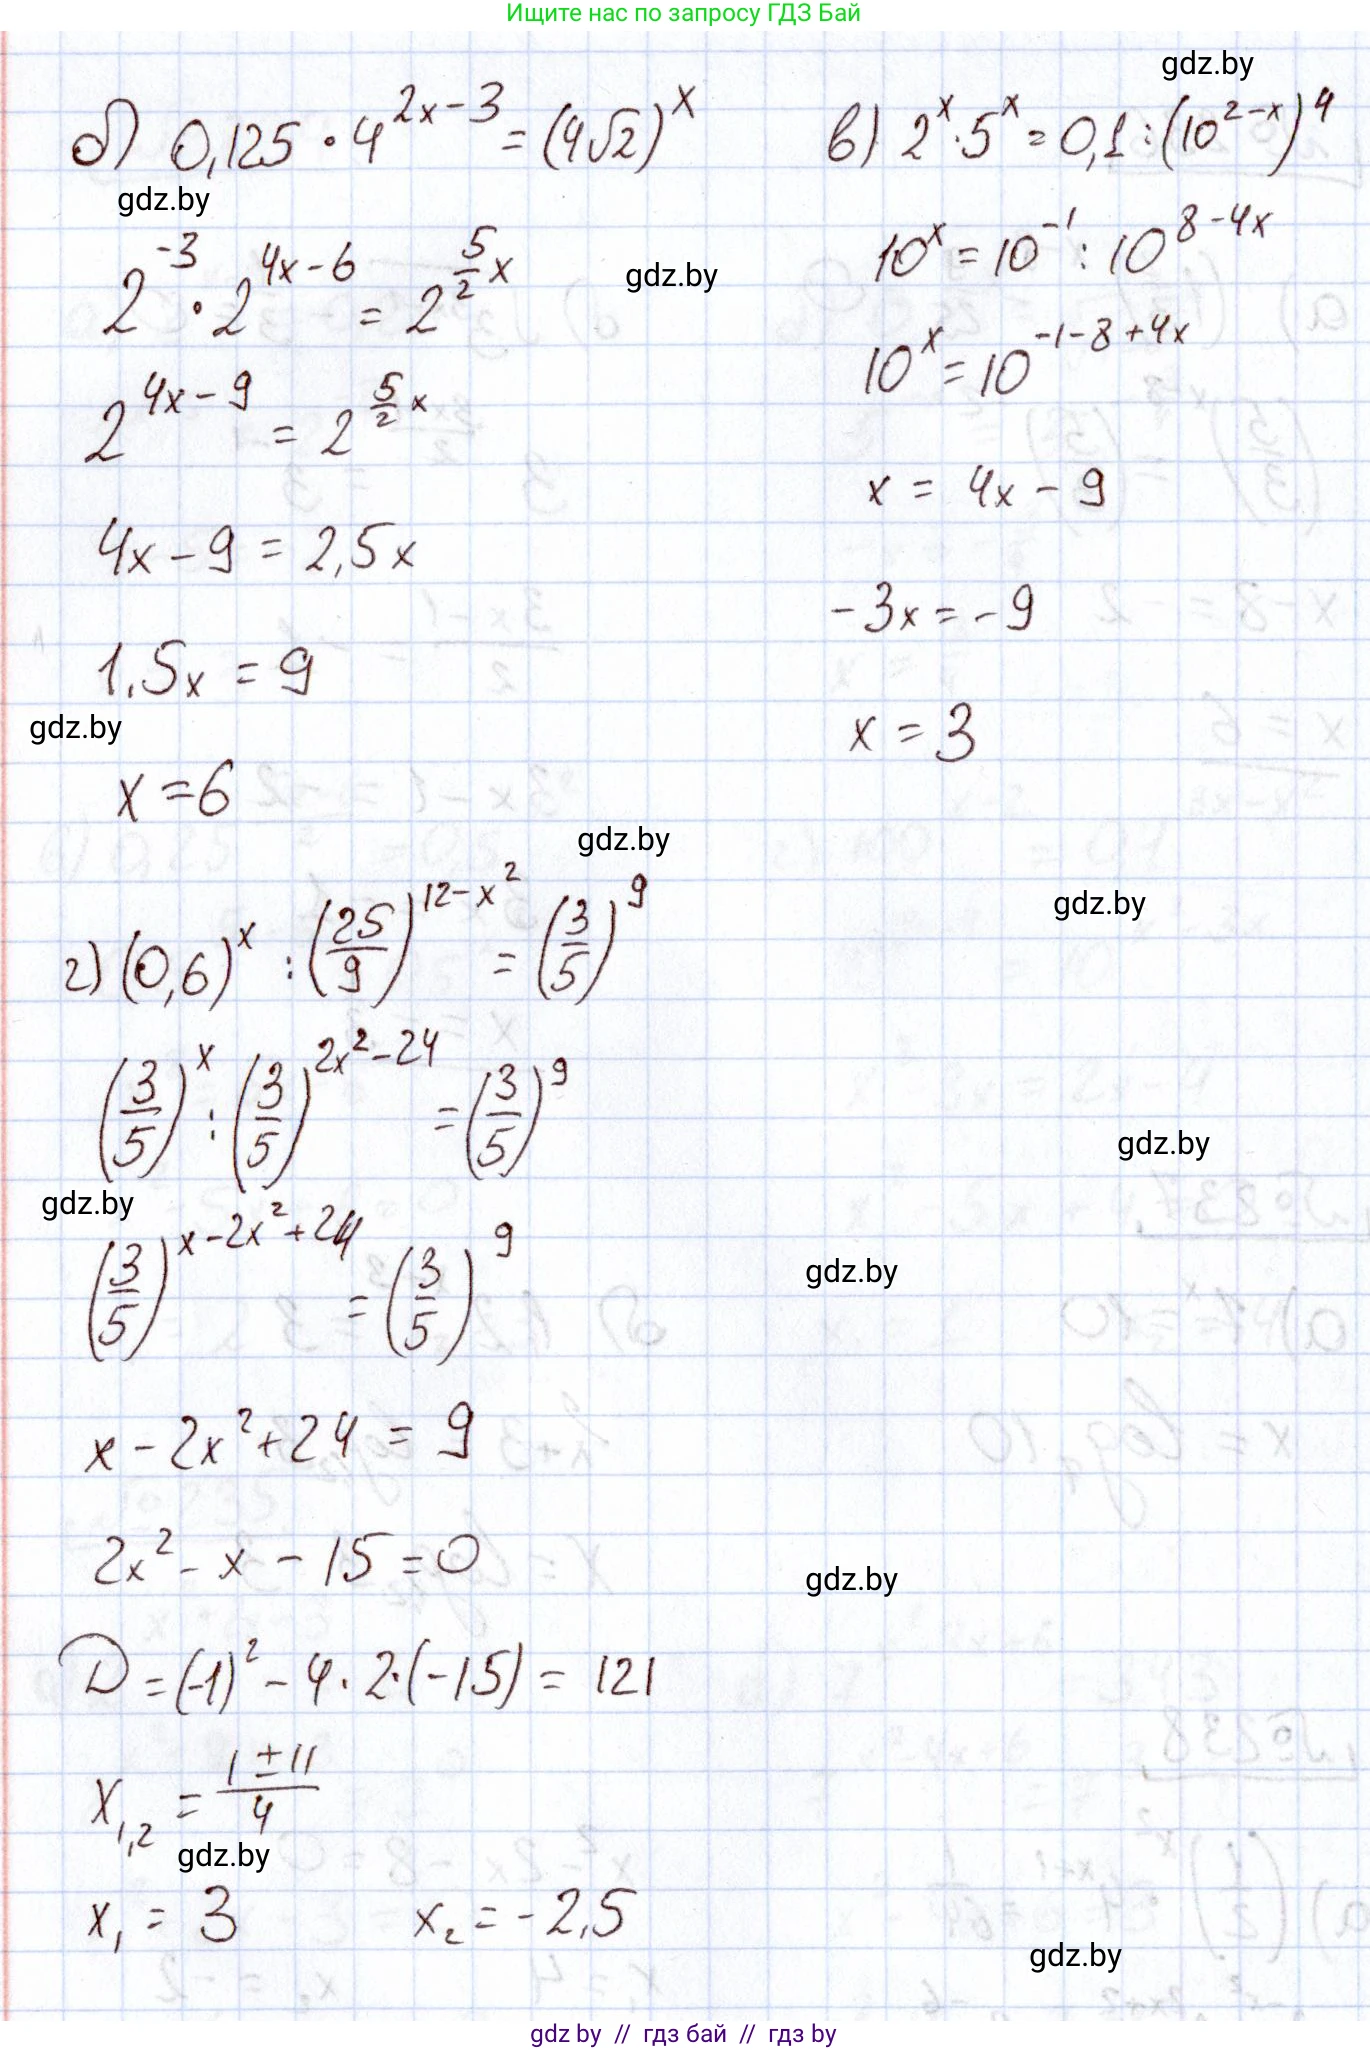 Ищите нас по запросу ГДЗ Бай
gdz.by
б) 0,125 · 4^(2x-3) = (4√2)^x
gdz.by
2^(-3) · 2^(4x-6) = 2^(5/2 x)
2^(4x-9) = 2^(5/2 x)
4x - 9 = 2,5x
1,5x = 9
gdz.by
x = 6
в) 2^x · 5^x = 0,1 : (10^(2-x))^4
gdz.by
10^x = 10^(-1) : 10^(8-4x)
10^x = 10^(-1-8+4x)
x = 4x - 9
-3x = -9
x = 3
gdz.by
gdz.by
г) (0,6)^x : (25/9)^(12-x^2) = (3/5)^9
(3/5)^x : (3/5)^(2x^2-24) = (3/5)^9
gdz.by
gdz.by
(3/5)^(x-2x^2+24) = (3/5)^9
gdz.by
x - 2x^2 + 24 = 9
2x^2 - x - 15 = 0
gdz.by
D = (-1)^2 - 4 · 2 · (-15) = 121
x_1,2 = (1 ± 11)/4
gdz.by
x_1 = 3 x_2 = -2,5
gdz.by
gdz by // гдз бай // гдз by